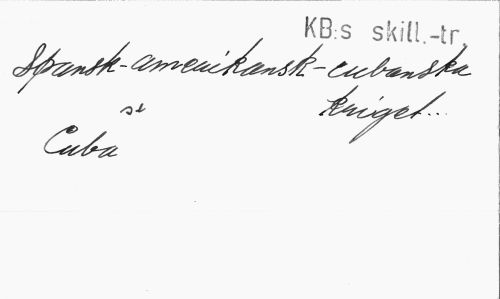 KB:s skill.-tr.
Spansk-amerikansk-cubanska
kriget...
se
Cuba